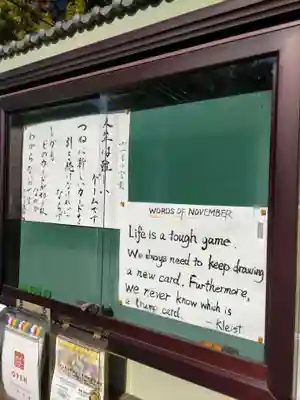 人生は難しい
ゲームです。
つねに新しいカードを
引き続けなければ
ならず
しかも
どのカードが切り札
なのか
わからないのです。
WORDS OF NOVEMBER
Life is a tough game.
We always need to keep drawing
a new card. Furthermore,
we never know which is
a trump card.
— Kleist
OPEN